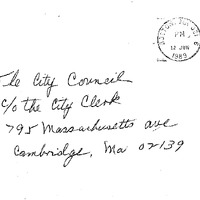 PM
12 JUN
1989
The City Council
c/o the City Clerk
795 Massachusetts ave
Cambridge, Ma 02139